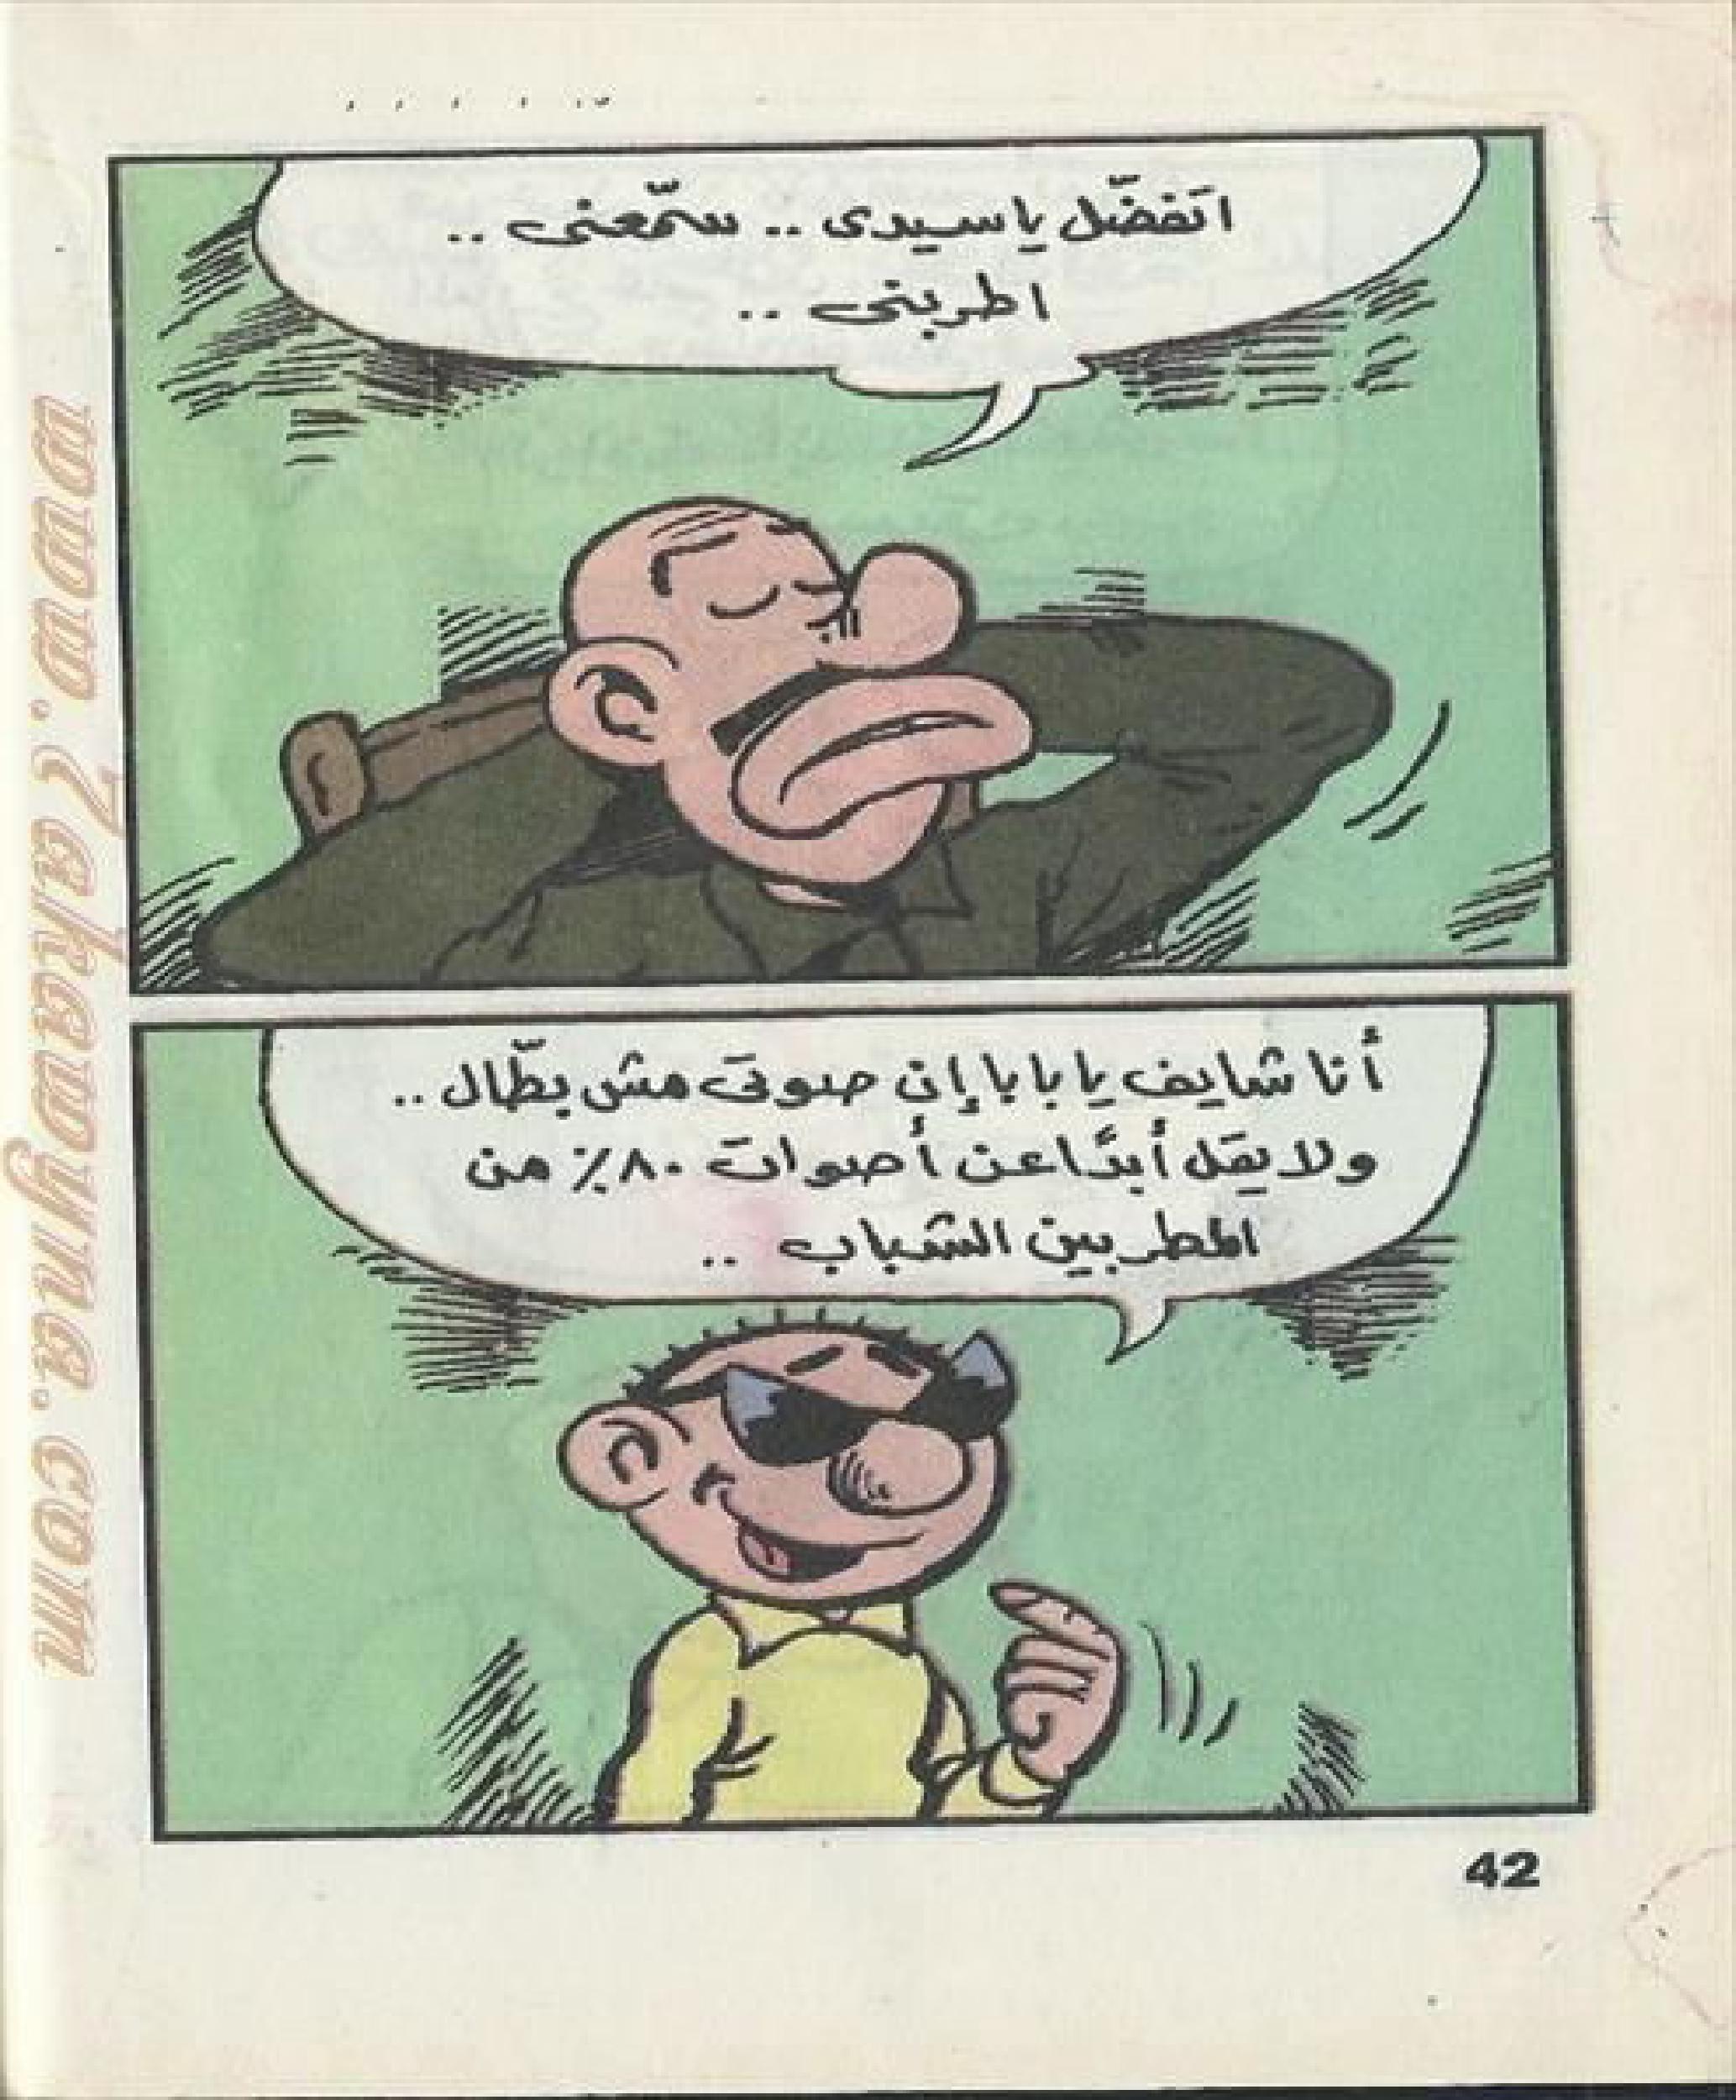 اتفضّل ياسيدى .. سمّعنى ..
اطربنى ..
أنا شايف يا بابا إن صوتى مش بطّال ..
ولا يقل أبدًا عن أصوات ٨٠٪ من
المطربين الشباب ..
42
www.7akawyna.com